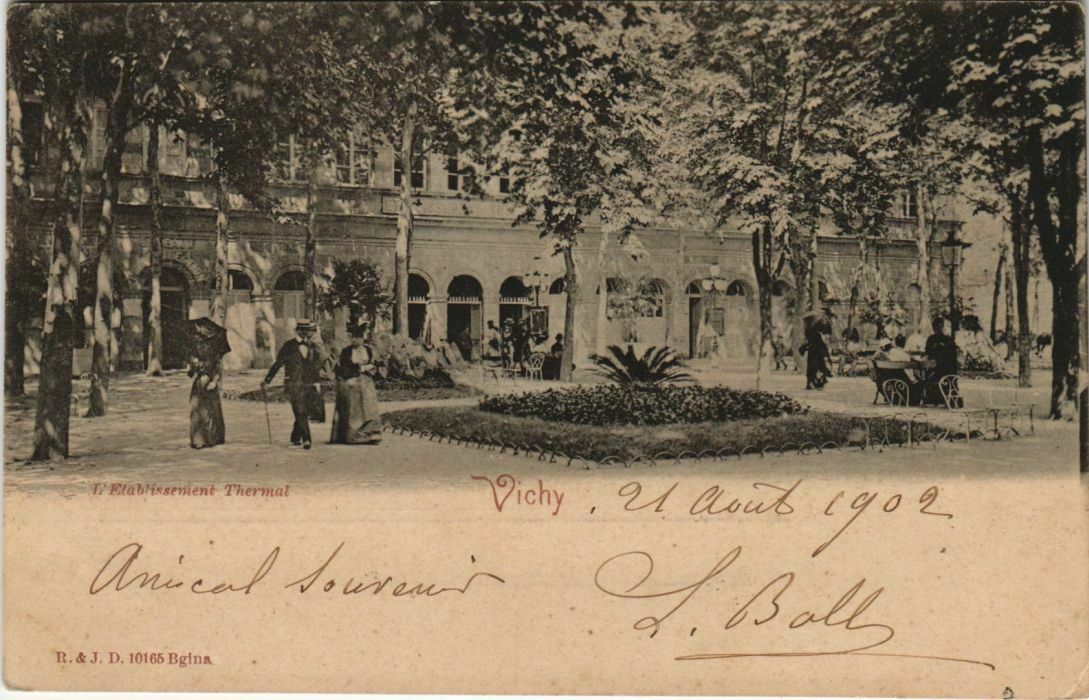 L'Etablissement Thermal
Vichy, 21 Août 1902
Amical Souvenir
L. Boll
R. & J. D. 10165 Bgina